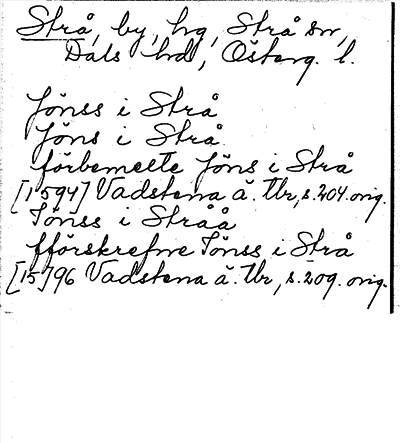 Strå, by, hg, Strå sn,
Dals hd, Österg. l.
Jönss i Strå
Jöns i Strå
förbemelte Jöns i Strå
[1594] Vadstena ä. Tbr, s. 404. orig.
Jönss i Stråå
fförskrefne Jönss i Strå
[15]96 Vadstena ä. Tbr, s. 209. orig.